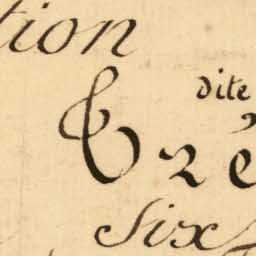 tion
dite
& 2 e
Six